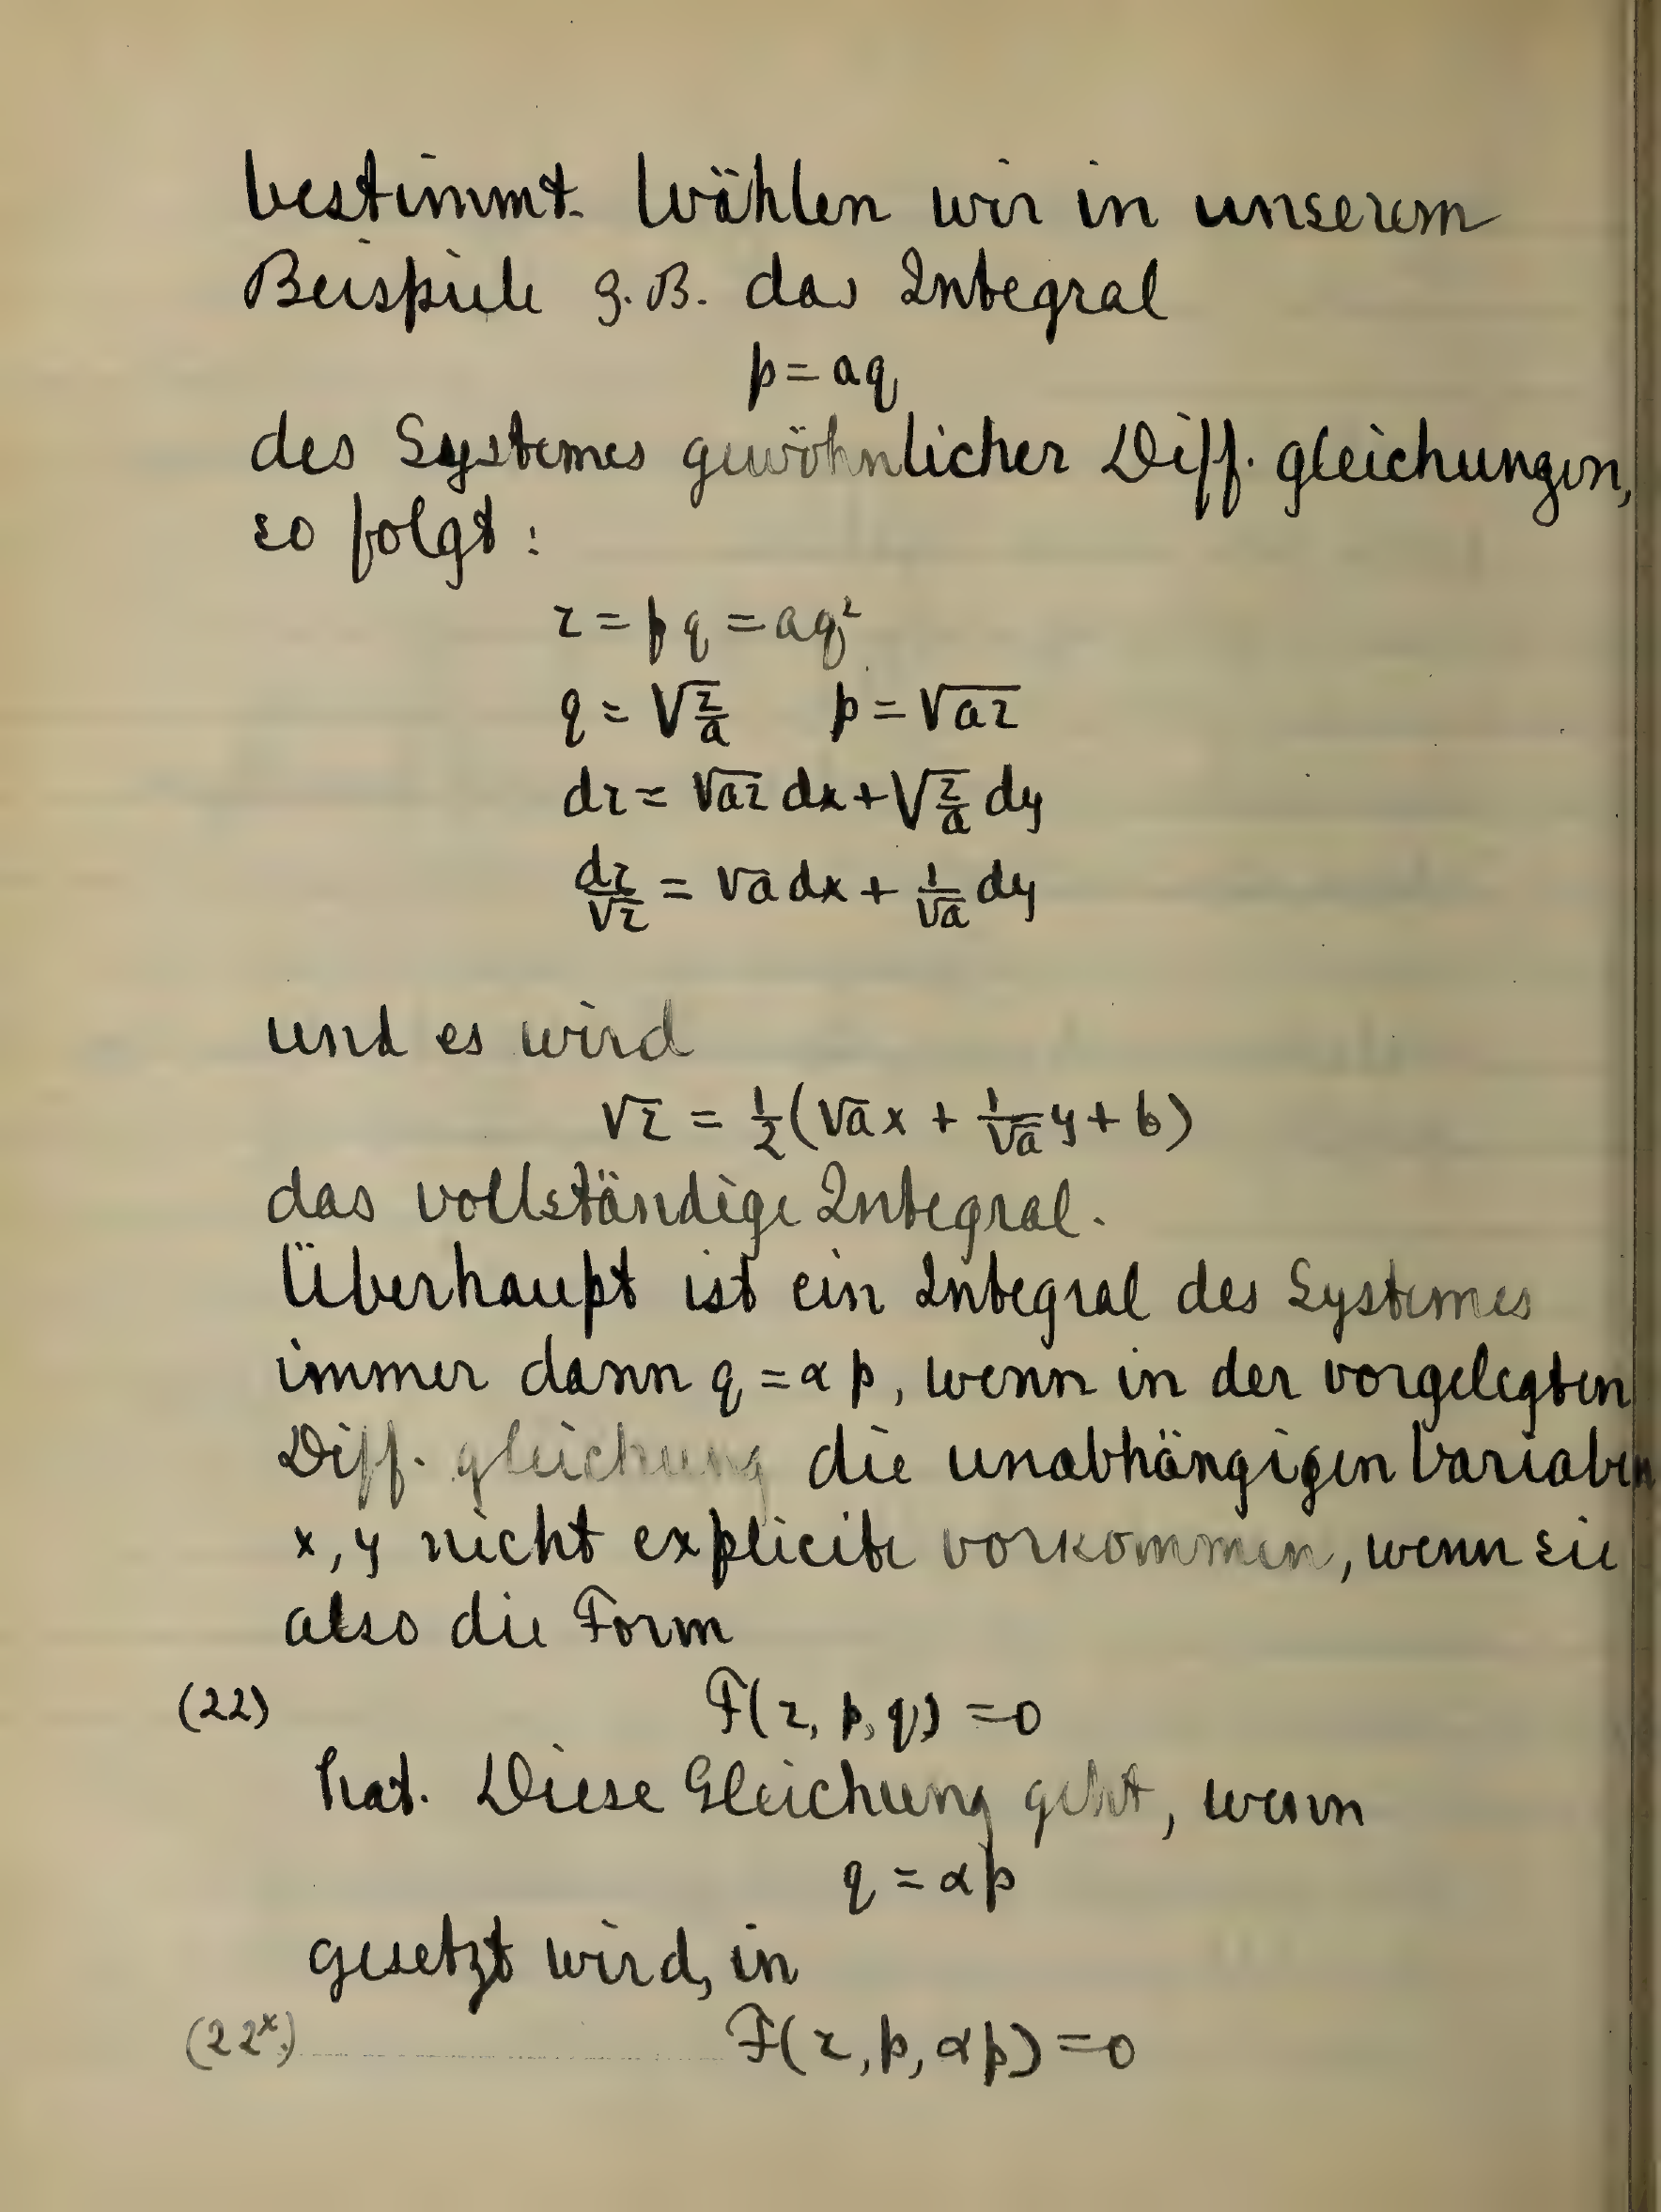 bestimmt. Wählen wir in unserem
Beispiele z.B. das Integral
p = aq
des Systemes gewöhnlicher Diff. gleichungen,
so folgt:
z = pq = aq²
q = √(z/a) p = √(az)
dz = √(az) dx + √(z/a) dy
dz/√z = √a dx + 1/√a dy
und es wird
√z = ½(√a x + 1/√a y + b)
das vollständige Integral.
Überhaupt ist ein Integral des Systemes
immer dann q = αp, wenn in der vorgelegten
Diff. gleichung die unabhängigen Variablen
x, y nicht explicite vorkommen, wenn sie
also die Form
(22) F(z, p, q) = 0
hat. Diese Gleichung geht, wenn
q = αp
gesetzt wird, in
(22ˣ) F(z, p, αp) = 0